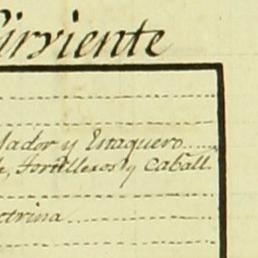 Sirviente
lador y Estaquero
Tortilleros y Caball.
ctrina